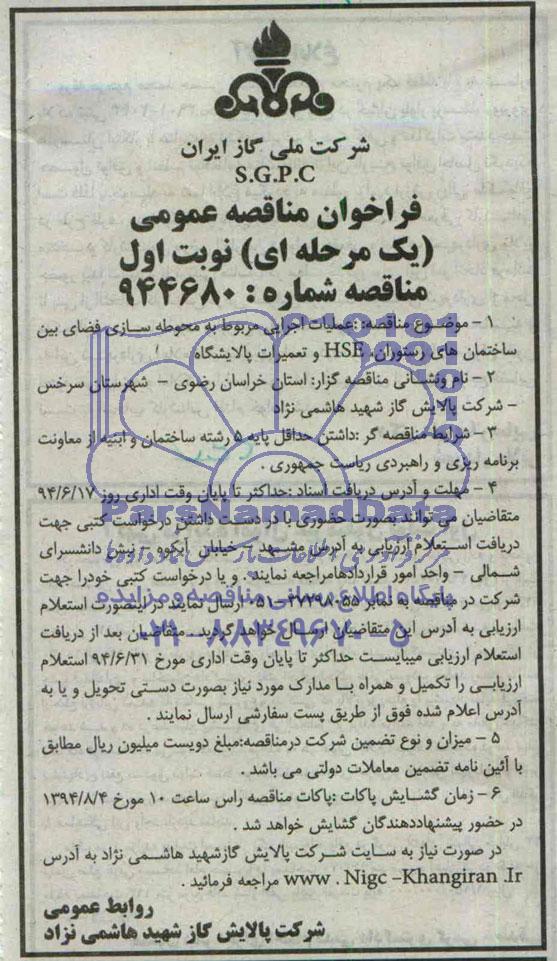 شرکت ملی گاز ایران
S.G.P.C
فراخوان مناقصه عمومی
(یک مرحله ای) نوبت اول
مناقصه شماره : ۹۴۴۶۸۰
۱ – موضوع مناقصه: :عملیات اجرایی مربوط به محوطه سازی فضای بین
ساختمان های رستوران، HSE و تعمیرات پالایشگاه
۲ – نام ونشانی مناقصه گزار: استان خراسان رضوی – شهرستان سرخس
– شرکت پالایش گاز شهید هاشمی نژاد
۳ – شرایط مناقصه گر :داشتن حداقل پایه ۵ رشته ساختمان و ابنیه از معاونت
برنامه ریزی و راهبردی ریاست جمهوری .
۴ – مهلت و آدرس دریافت اسناد :حداکثر تا پایان وقت اداری روز ۹۴/۶/۱۷
متقاضیان می توانند بصورت حضوری با در دست داشتن درخواست کتبی جهت
دریافت استعلام ارزیابی به آدرس مشهد – خیابان آبکوه – نبش دانشسرای
شمالی – واحد امور قراردادهامراجعه نمایند. و یا درخواست کتبی خودرا جهت
شرکت در مناقصه به نمابر ۰۵۱-۳۷۲۹۸۰۵۵ ارسال نمایند دراینصورت استعلام
ارزیابی به آدرس این متقاضیان ارسال خواهد گردید. متقاضیان بعد از دریافت
استعلام ارزیابی میبایست حداکثر تا پایان وقت اداری مورخ ۹۴/۶/۳۱ استعلام
ارزیابی را تکمیل و همراه با مدارک مورد نیاز بصورت دستی تحویل و یا به
آدرس اعلام شده فوق از طریق پست سفارشی ارسال نمایند .
۵ – میزان و نوع تضمین شرکت درمناقصه:مبلغ دویست میلیون ریال مطابق
با آئین نامه تضمین معاملات دولتی می باشد .
۶ – زمان گشایش پاکات :پاکات مناقصه راس ساعت ۱۰ مورخ ۱۳۹۴/۸/۴
در حضور پیشنهاددهندگان گشایش خواهد شد .
در صورت نیاز به سایت شرکت پالایش گازشهید هاشمی نژاد به آدرس
www . Nigc –Khangiran .Ir مراجعه فرمائید .
روابط عمومی
شرکت پالایش گاز شهید هاشمی نژاد
ParsNamadData
پایگاه اطلاع رسانی مناقصه و مزایده
۰۲۱-۸۸۳۴۹۶۷۰-۵